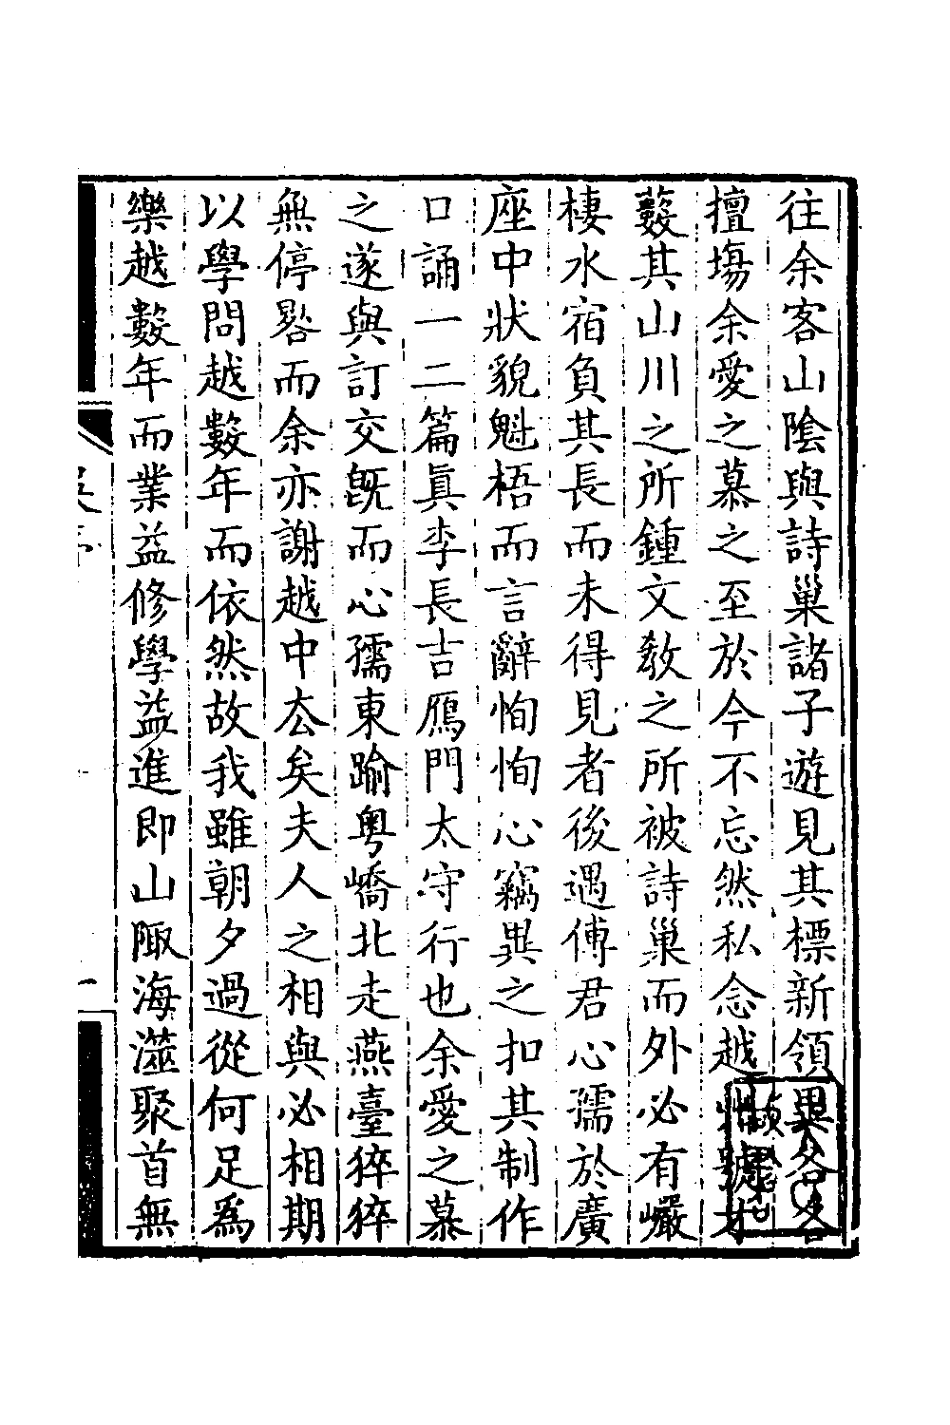 往余客山陰與詩巢諸子遊見其標新領異各各
擅場余愛之慕之至於今不忘然私念越州號才
藪其山川之所鍾文敎之所被詩巢而外必有巖
棲水宿負其長而未得見者後遇傅君心孺於廣
座中狀貌魁梧而言辭恂恂心竊異之扣其制作
口誦一二篇眞李長吉鴈門太守行也余愛之慕
之遂與訂交旣而心孺東踰粤嶠北走燕臺猝猝
無停晷而余亦謝越中去矣夫人之相與必相期
以學問越數年而依然故我雖朝夕過從何足爲
樂越數年而業益修學益進卽山陬海澨聚首無